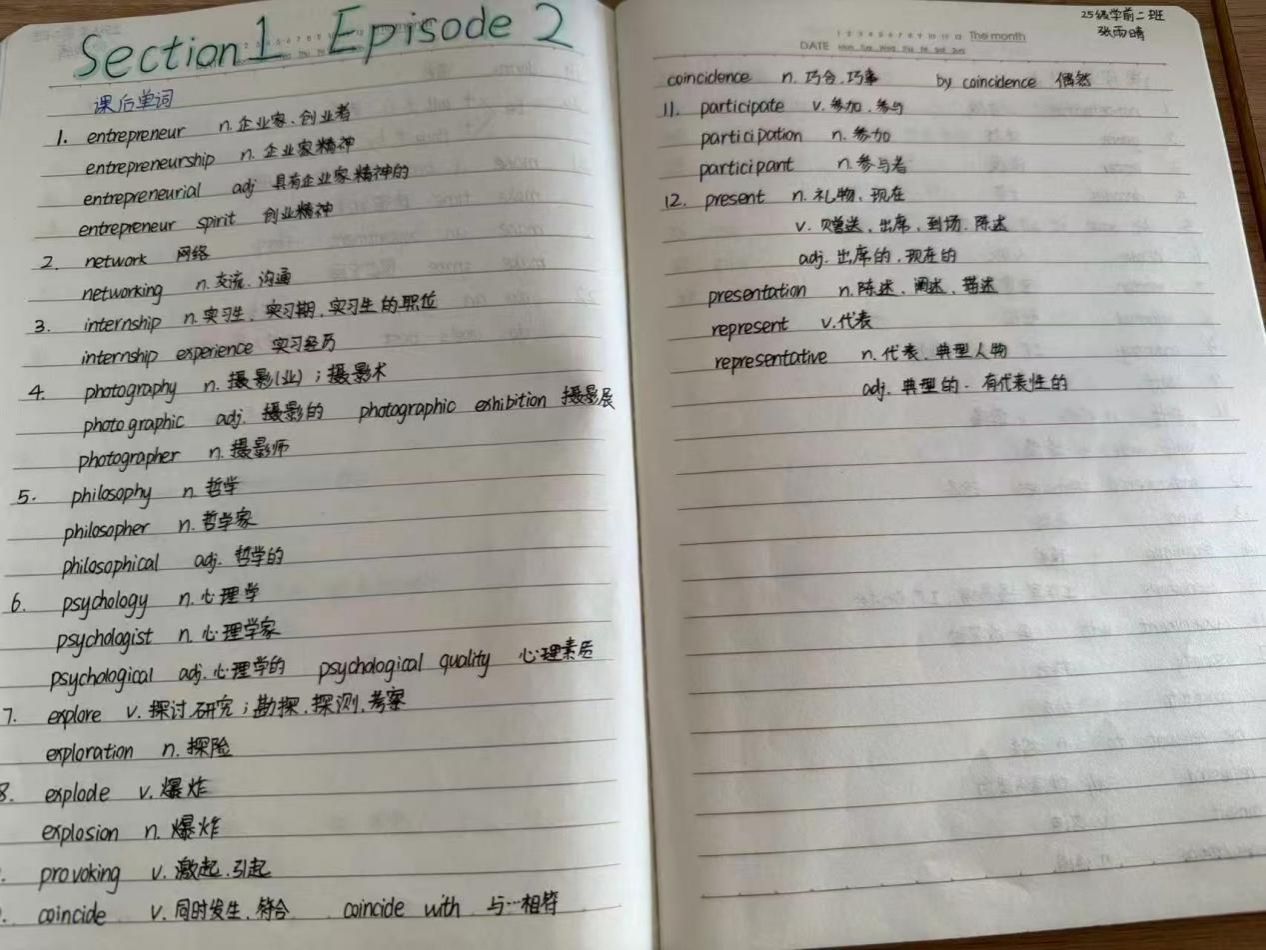 Section 1 Episode 2
课后单词
1. entrepreneur n.企业家、创业者
entrepreneurship n.企业家精神
entrepreneurial adj 具有企业家精神的
entrepreneur spirit 创业精神
2. network 网络
networking n.交流、沟通
3. internship n.实习生、实习期,实习生的职位
internship experience 实习经历
4. photography n.摄影(业);摄影术
photographic adj. 摄影的 photographic exhibition 摄影展
photographer n.摄影师
5. philosophy n.哲学
philosopher n.哲学家
philosophical adj. 哲学的
6. psychology n.心理学
psychologist n.心理学家
psychological adj.心理学的 psychological quality 心理素质
7. explore v.探讨.研究;勘探.探测.考察
exploration n.探险
8. explode v.爆炸
explosion n.爆炸
. provoking v.激起.引起
. coincide v.同时发生.符合 coincide with 与…相符
25级学前二班
张雨晴
1 2 3 4 5 6 7 8 9 10 11 12 The month
DATE Mon Tue Wed Thu Fri Sat Sun
coincidence n.巧合.巧事 by coincidence 偶然
11. participate v.参加.参与
participation n.参加
participant n.参与者
12. present n.礼物、现在
v.赠送、出席、到场.陈述
adj.出席的.现在的
presentation n.陈述、阐述、描述
represent v.代表
representative n.代表、典型人物
adj.典型的.有代表性的